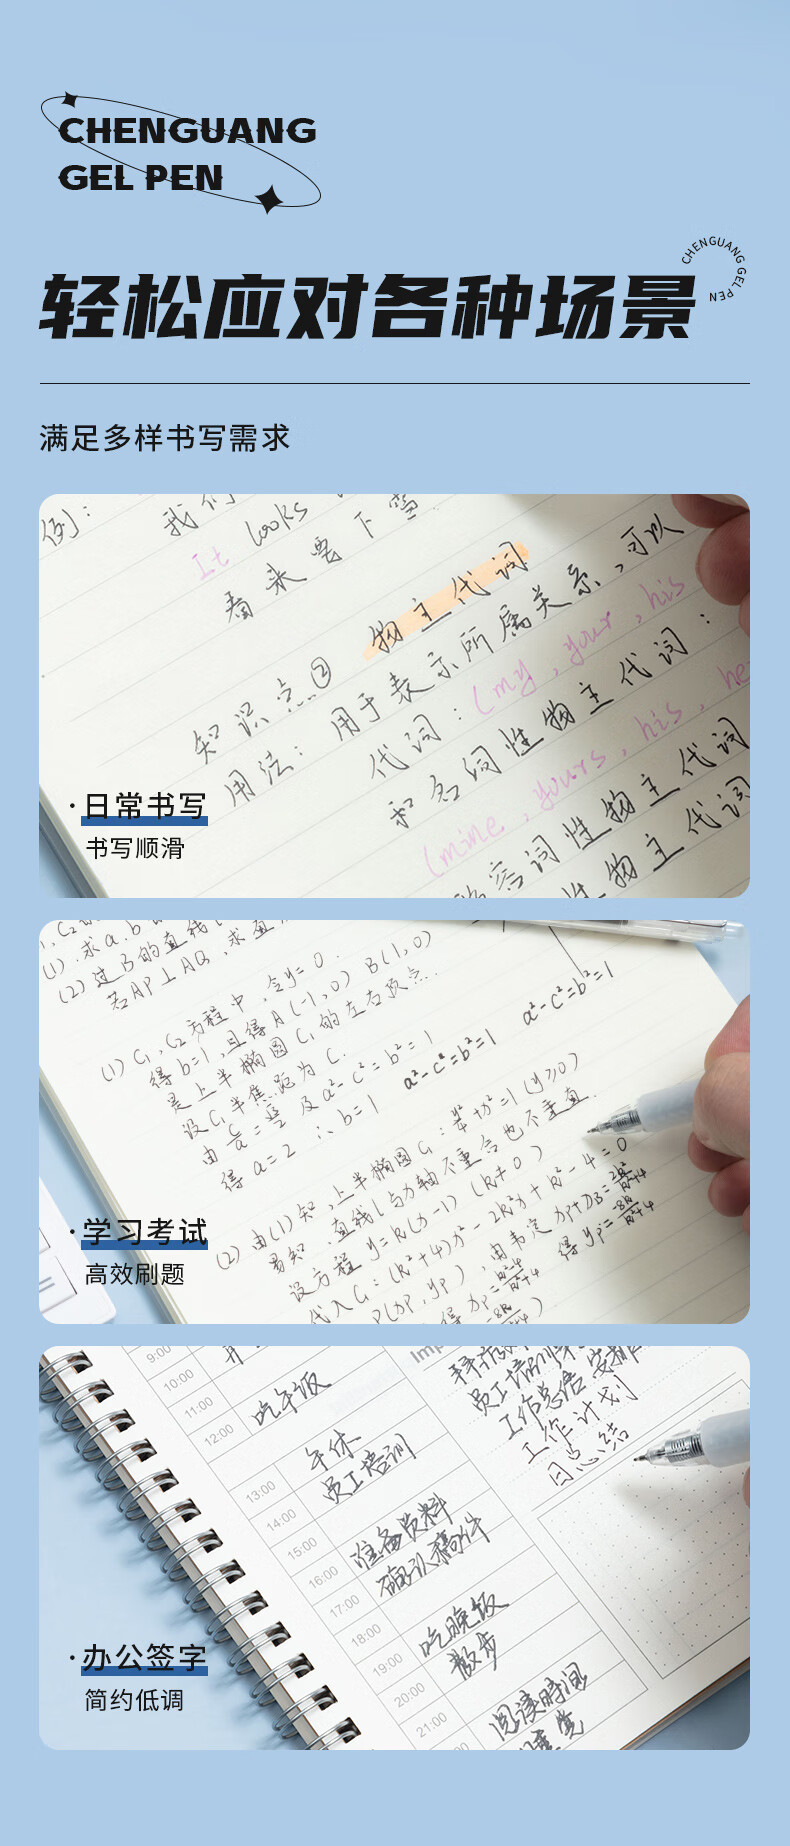 CHENGUANG
GEL PEN
轻松应对各种场景
CHENGUANG GEL PEN
满足多样书写需求
例： 我们
It looks
看来要下雪.
知识点② 物主代词
用法：用于表示所属关系,可以
代词：(my, your, his
和名词性物主代词：
(mine, yours, his, he
容词性物主代词
性物主代词
·日常书写
书写顺滑
(1).求a.b
(2)过B的直线l
若AP⊥AQ,求直
(1) C₁,C₂方程中,令y=0.
得b=1,且得A(-1,0) B(1,0)
是上半椭圆C₁的左右顶点.
设C₁半焦距为C.
由 及a²-c²=b²=1
a²-c²=b²=1
a²-c²=b²=1
得a=2 ∴b=1
(2)由(1)知,上半椭圆C₁: +x²=1(y≥0)
易知,直线l与x轴不重合也不垂直.
设方程 y=k(x-1) (k≠0)
代入C₁:(k²+4)x²-2k²x+k²-4=0
P(xp,yp),由韦定 xp+xB=2k²/k²+4
得xp=k²-4/k²+4 得yp=-8k/k²+4
·学习考试
高效刷题
9:00
10:00
11:00
12:00 吃午饭
13:00 午休
14:00 员工培训
15:00
16:00 准备资料
17:00 确认稿件
18:00
19:00 吃晚饭
20:00 散步
21:00
阅读时间
Imp
员工培训
工作总结 安排
工作计划
日总结
·办公签字
简约低调